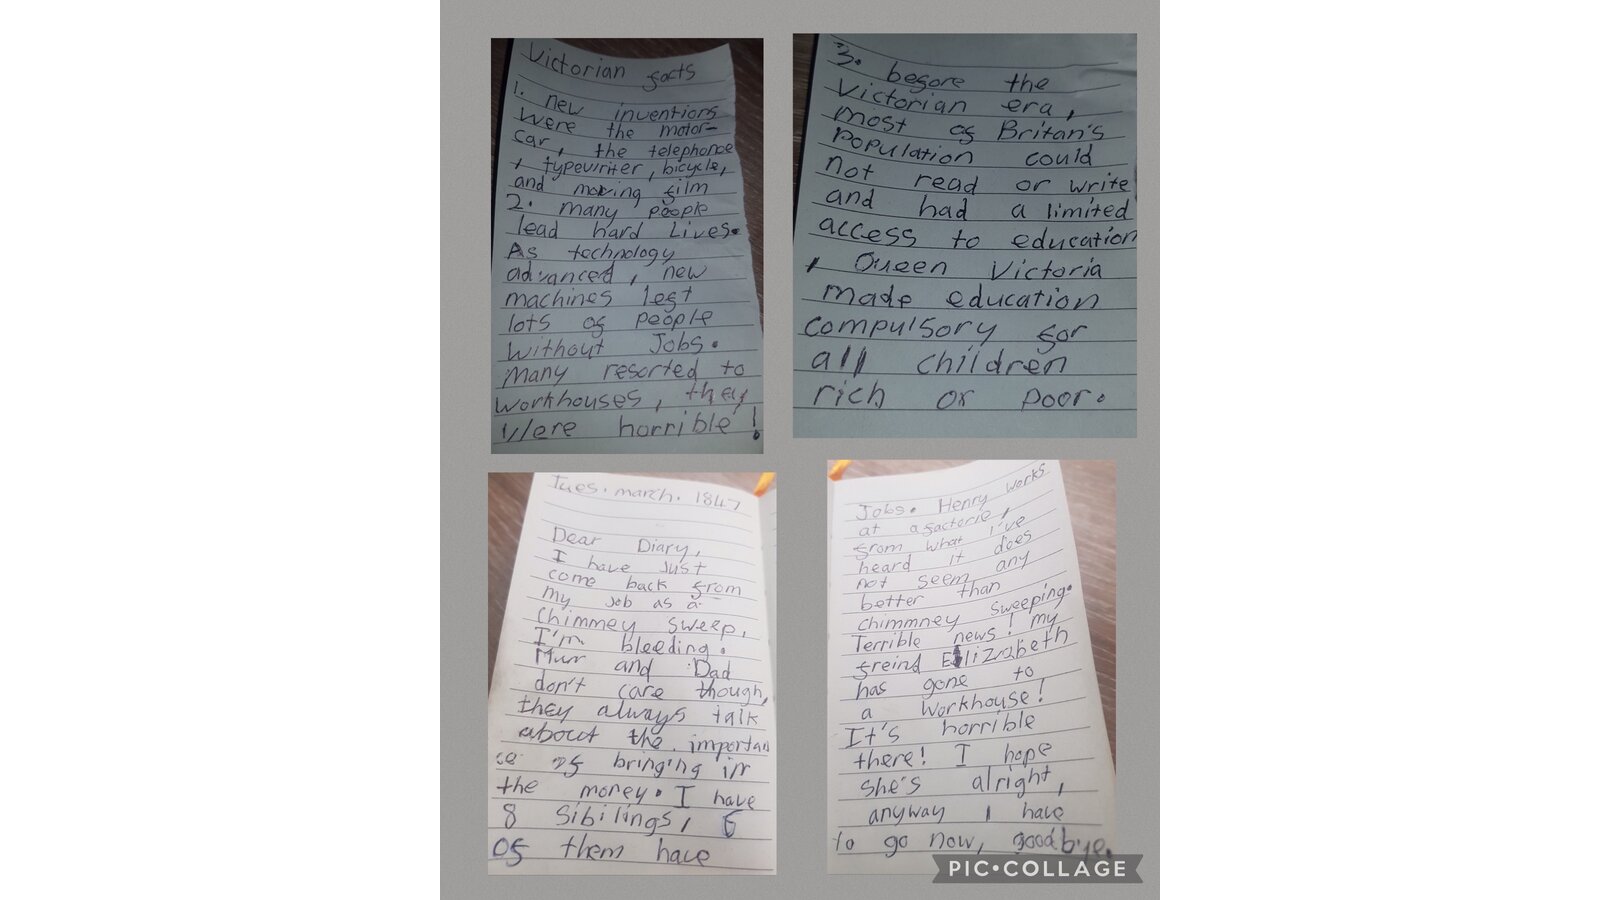 Victorian facts
1. new inventions
were the motor-
car, the telephone
, typewriter, bicycle,
and moving film
2. many people
lead hard Lives.
As technology
advanced, new
machines left
lots of people
without Jobs.
Many resorted to
workhouses, they
Were horrible!
3. before the
Victorian era,
most of Britan's
Population could
not read or write
and had a limited
access to education
, Queen Victoria
made education
compulsory for
all children
rich or poor.
Tues. march. 1847
Dear Diary,
I have Just
come back from
my job as a
Chimmey sweep,
I'm bleeding.
Mum and Dad
don't care though,
they always talk
about the importan
ce of bringing in
the money. I have
8 Sibilings, 6
of them have
Jobs. Henry works
at a factorie,
from what I've
heard it does
not seem any
better than
chimmney sweeping.
Terrible news! my
freind Elizabeth
has gone to
a workhouse!
It's horrible
there! I hope
she's alright,
anyway I have
to go now, goodbye.
PIC•COLLAGE